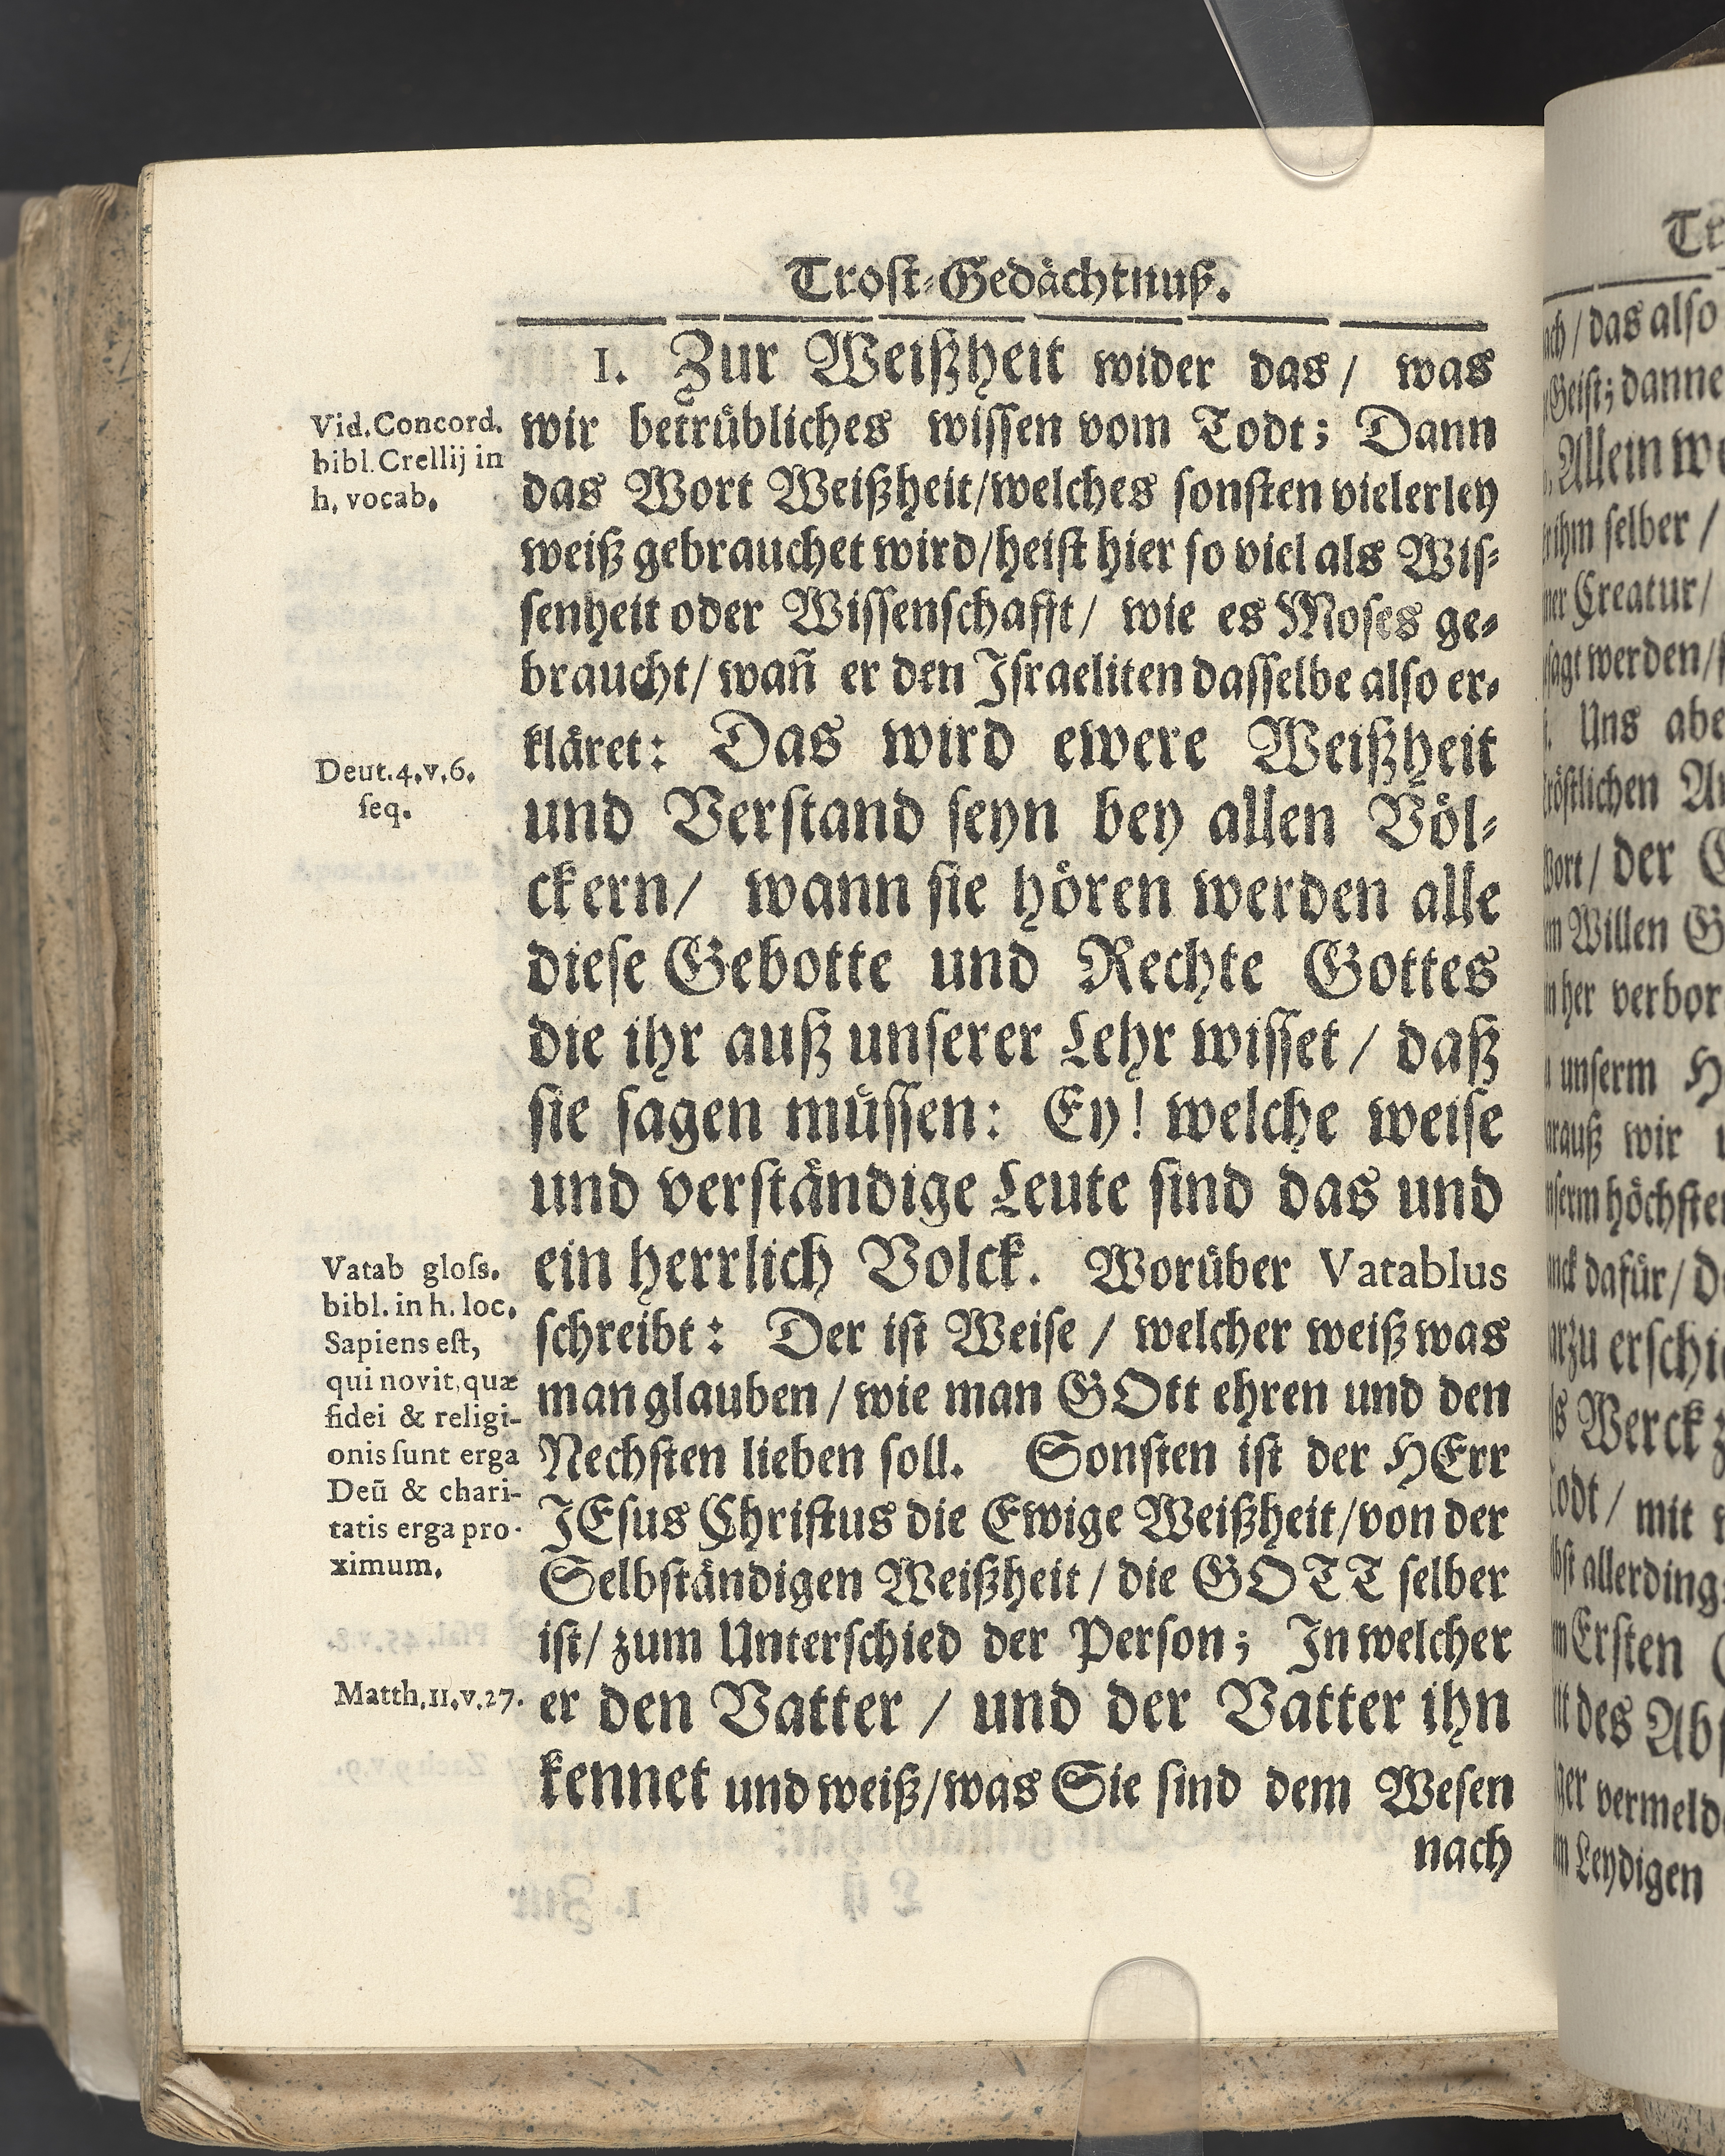 Trost-Gedächtnuß.
1. Zur Weißheit wider das / was
wir betrübliches wissen vom Todt; Dann
das Wort Weißheit/welches sonsten vielerley
weiß gebrauchet wird/heist hier so viel als Wis-
senheit oder Wissenschafft/ wie es Moses ge-
braucht/ wañ er den Israeliten dasselbe also er-
kläret: Das wird ewere Weißheit
und Verstand seyn bey allen Völ-
ckern/ wann sie hören werden alle
diese Gebotte und Rechte Gottes
die ihr auß unserer Lehr wisset / daß
sie sagen müssen: Ey! welche weise
und verständige Leute sind das und
ein herrlich Volck. Worüber Vatablus
schreibt: Der ist Weise / welcher weiß was
man glauben / wie man GOtt ehren und den
Nechsten lieben soll. Sonsten ist der HErr
JEsus Christus die Ewige Weißheit/von der
Selbständigen Weißheit / die GOTT selber
ist/ zum Unterschied der Person; In welcher
er den Vatter / und der Vatter ihn
kennet und weiß/was Sie sind dem Wesen
nach
Vid. Concord.
bibl. Crellij in
h. vocab.
Deut. 4. v. 6.
seq.
Vatab gloss.
bibl. in h. loc.
Sapiens est,
qui novit, quæ
fidei & religi-
onis sunt erga
Deũ & chari-
tatis erga pro-
ximum.
Matth. 11. v. 27.
das also
Geist; danne
Allein
ihm selber /
Creatur /
werden /
Uns
Wort / der
Willen
her
unserm
wir
höchsten
dafür /
Werck
Todt / mit
allerdings
Ersten
des
Leydigen